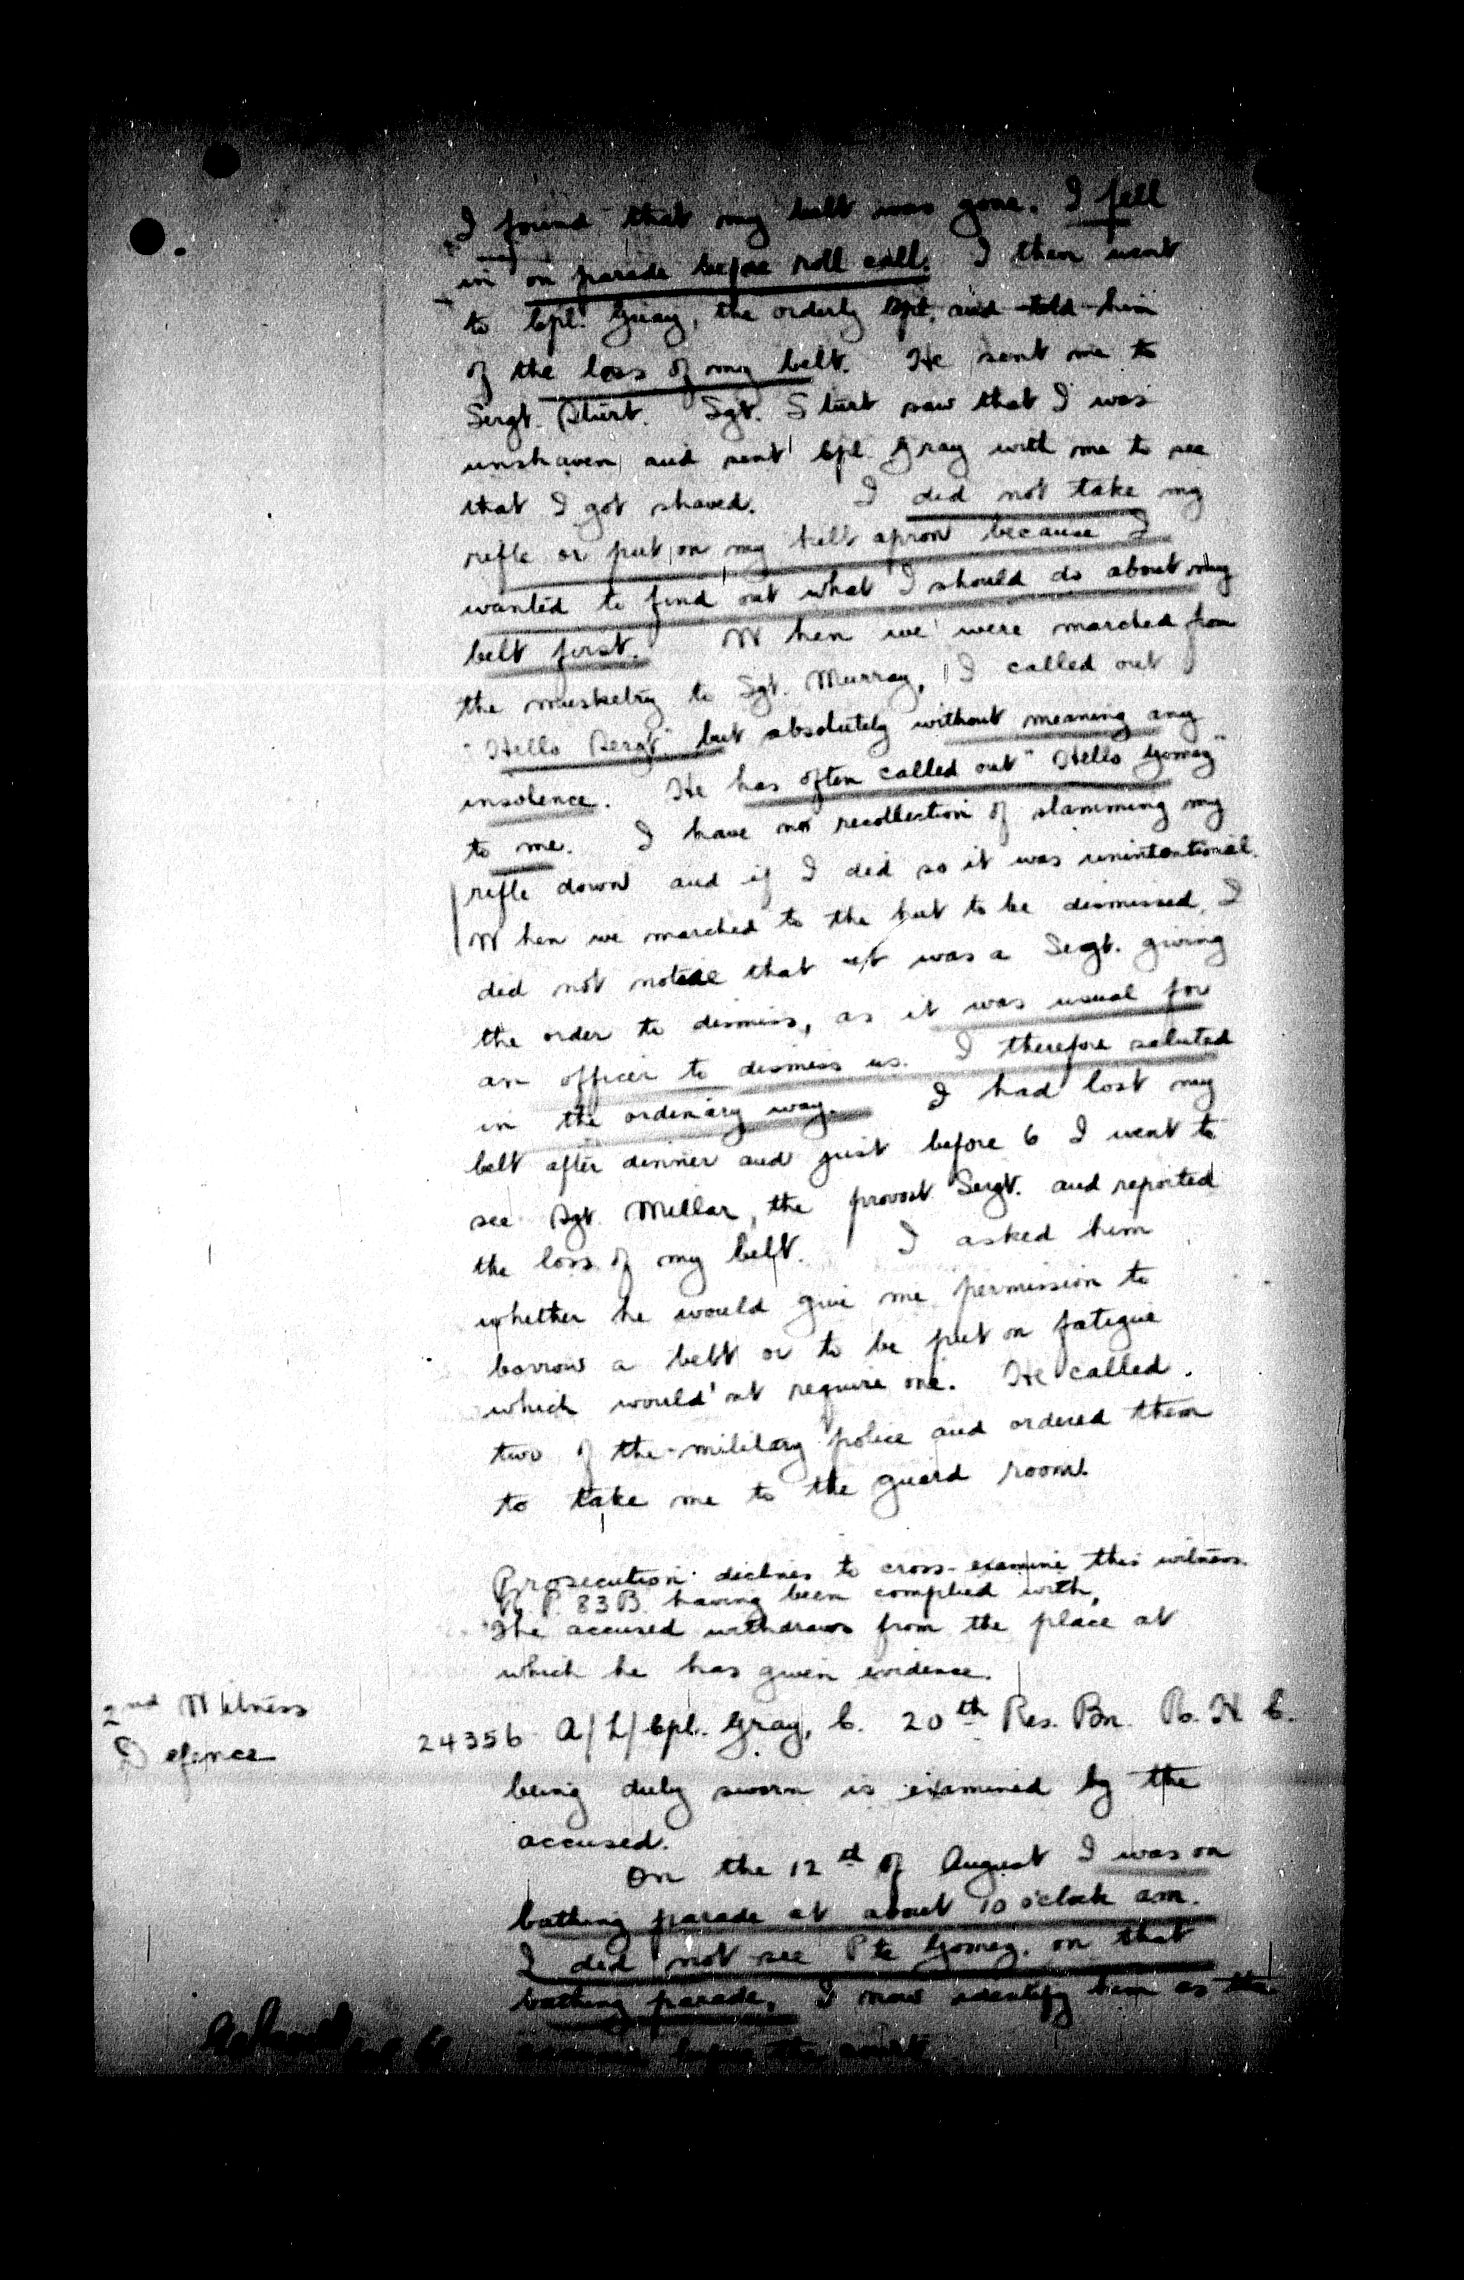 I found that my belt was gone. I fell
in on parade before roll call. I then went
to Cpl. Gray, the orderly Cpl. and told him
of the loss of my belt. He sent me to
Sergt. Sturt. Sgt. Sturt saw that I was
unshaven and sent Cpl. Gray with me to see
that I got shaved. I did not take my
rifle or put on my kilt apron because I
wanted to find out what I should do about my
belt first. When we were marched from
the musketry to Sgt. Murray, I called out
"Hello Sergt" but absolutely without meaning any
insolence. He has often called out "Hello Gomez"
to me. I have no recollection of slamming my
rifle down and if I did so it was unintentional.
When we marched to the hut to be dismissed, I
did not notice that it was a Sergt. giving
the order to dismiss, as it was usual for
an officer to dismiss us. I therefore saluted
in the ordinary way. I had lost my
belt after dinner and just before 6 I went to
see Sgt. Millar, the provost Sergt. and reported
the loss of my belt. I asked him
whether he would give me permission to
borrow a belt or to be put on fatigue
which would not require one. He called
two of the military police and ordered them
to take me to the guard room.
Prosecution declines to cross-examine this witness.
R. P. 83B. having been complied with,
The accused withdraws from the place at
which he has given evidence.
2nd Witness
Defence
24356 A/L/Cpl. Gray, C. 20th Res. Bn. R. H. C.
being duly sworn is examined by the
accused.
On the 12th of August I was on
bathing parade at about 10 o'clock am.
I did not see Pte Gomez. on that
bathing parade, I now identify him as the
before the court